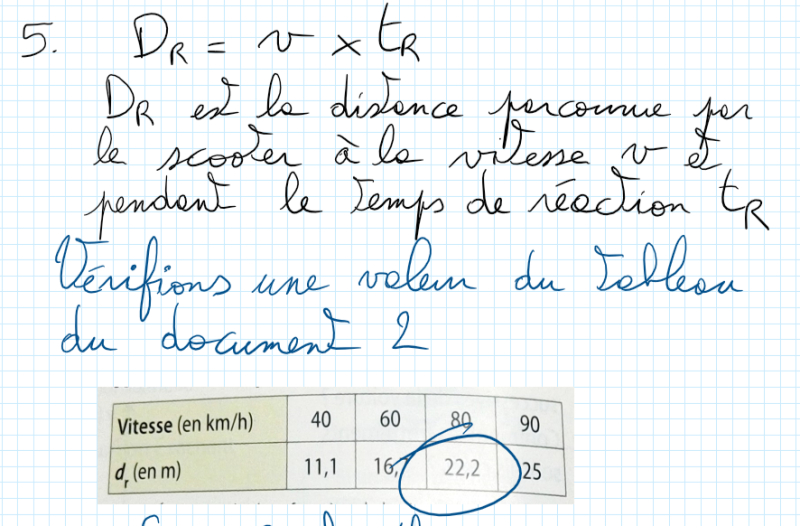 5. D_R = v × t_R
D_R est la distance parcourue par
le scooter à la vitesse v et
pendant le temps de réaction t_R
Vérifions une valeur du tableau
du document 2
Vitesse (en km/h) 40 60 80 90
d_r (en m) 11,1 16,7 22,2 25